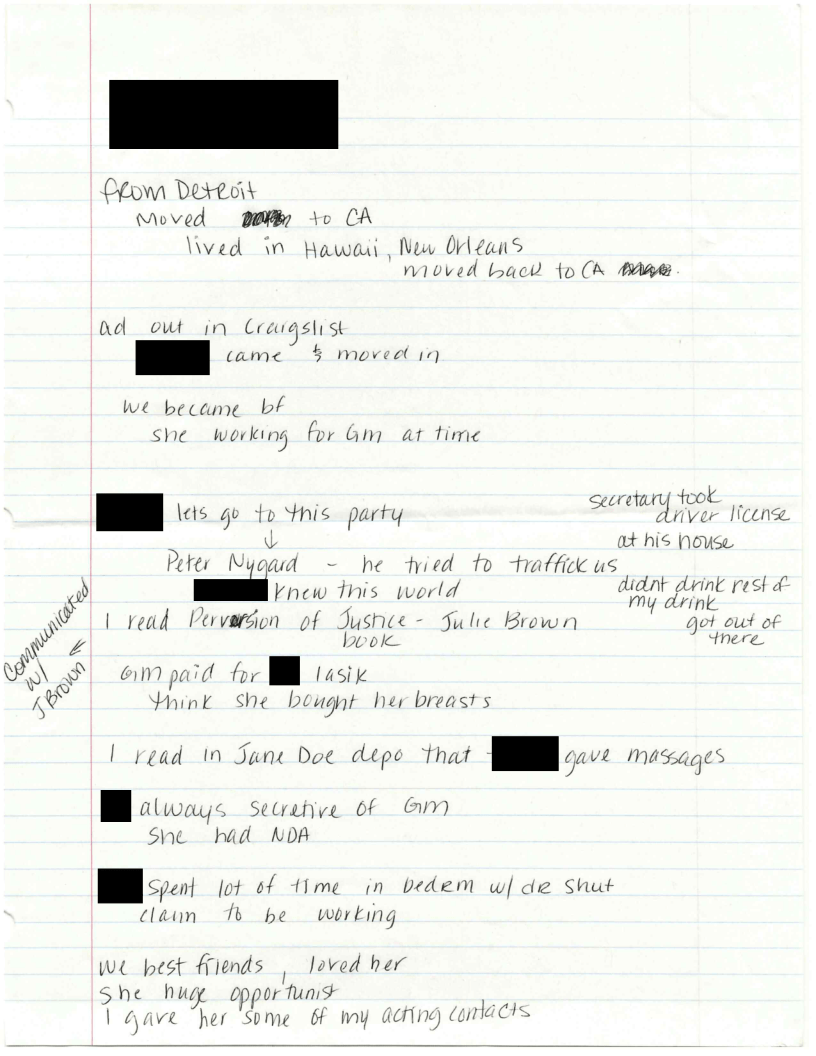 from Detroit
moved to CA
lived in Hawaii, New Orleans
moved back to CA
ad out in Craigslist
came & moved in
we became bf
she working for GM at time
lets go to this party
↓
Peter Nygard - he tried to traffick us
knew this world
I read Perversion of Justice - Julie Brown
book
secretary took
driver license
at his house
didnt drink rest of
my drink
got out of
there
Communicated
w/
J Brown
GM paid for lasik
think she bought her breasts
I read in Jane Doe depo that - gave massages
always secretive of GM
she had NDA
spent lot of time in bedrm w/ dr shut
claim to be working
we best friends, loved her
she huge opportunist
I gave her some of my acting contacts